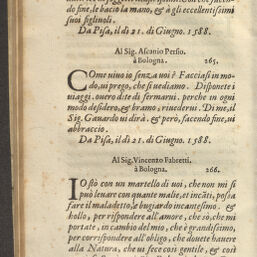 do fine, le bacio la mano, & à gli eccellentissimi
suoi figliuoli.
Da Pisa, il dì 21. di Giugno. 1588.
Al Sig. Ascanio Persio.
à Bologna. 265.
COme vivo io senza voi? Facciasi in mo-
do, vi prego, che si vediamo. Disponete i
viaggi. overo dite di fermarvi. perche in ogni
modo desidero, & bramo, rivedervi. Di me, il
Sig. Gavardo vi dirà. & però, facendo fine, vi
abbraccio.
Da Pisa, il dì 21. di Giugno. 1588.
Al Sig. Vincenzo Fabretti.
à Bologna. 266.
IO stò con un martello di voi, che non mi si
può levare con quante malie, et incāti, possa
fare il maladetto, le bugiardo incantesimo. &
hollo, per rispondere all'amore, che sò, che mi
portate, in cambio del mio, che è grandissimo,
per corrispondere all'obligo, che dovete havere
alla Natura, che vi fece così gentile, & così